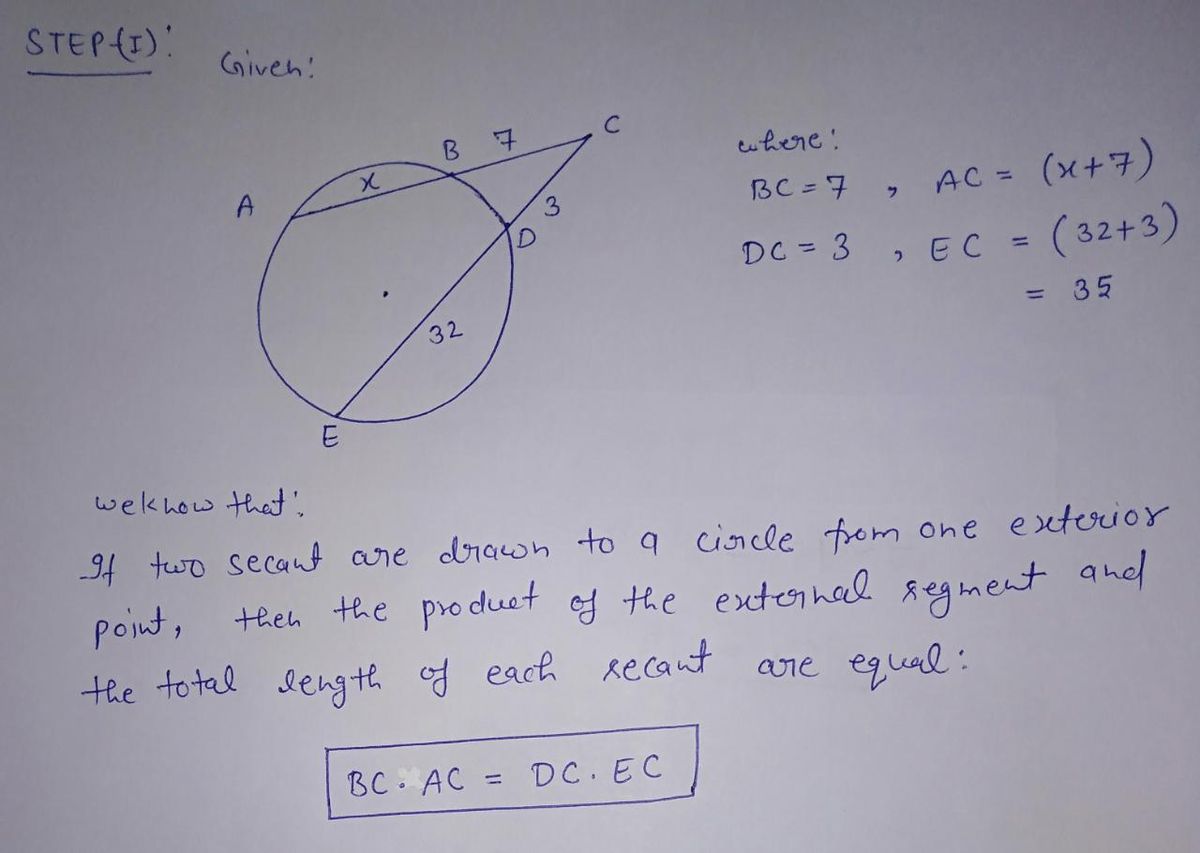 STEP-(I):
Given:
C
7
B
x
A
3
D
32
E
where:
BC = 7 , AC = (x+7)
DC = 3 , EC = (32+3)
= 35
we know that:
If two secant are drawn to a circle from one exterior
point, then the product of the external segment and
the total length of each secant are equal:
BC . AC = DC . EC